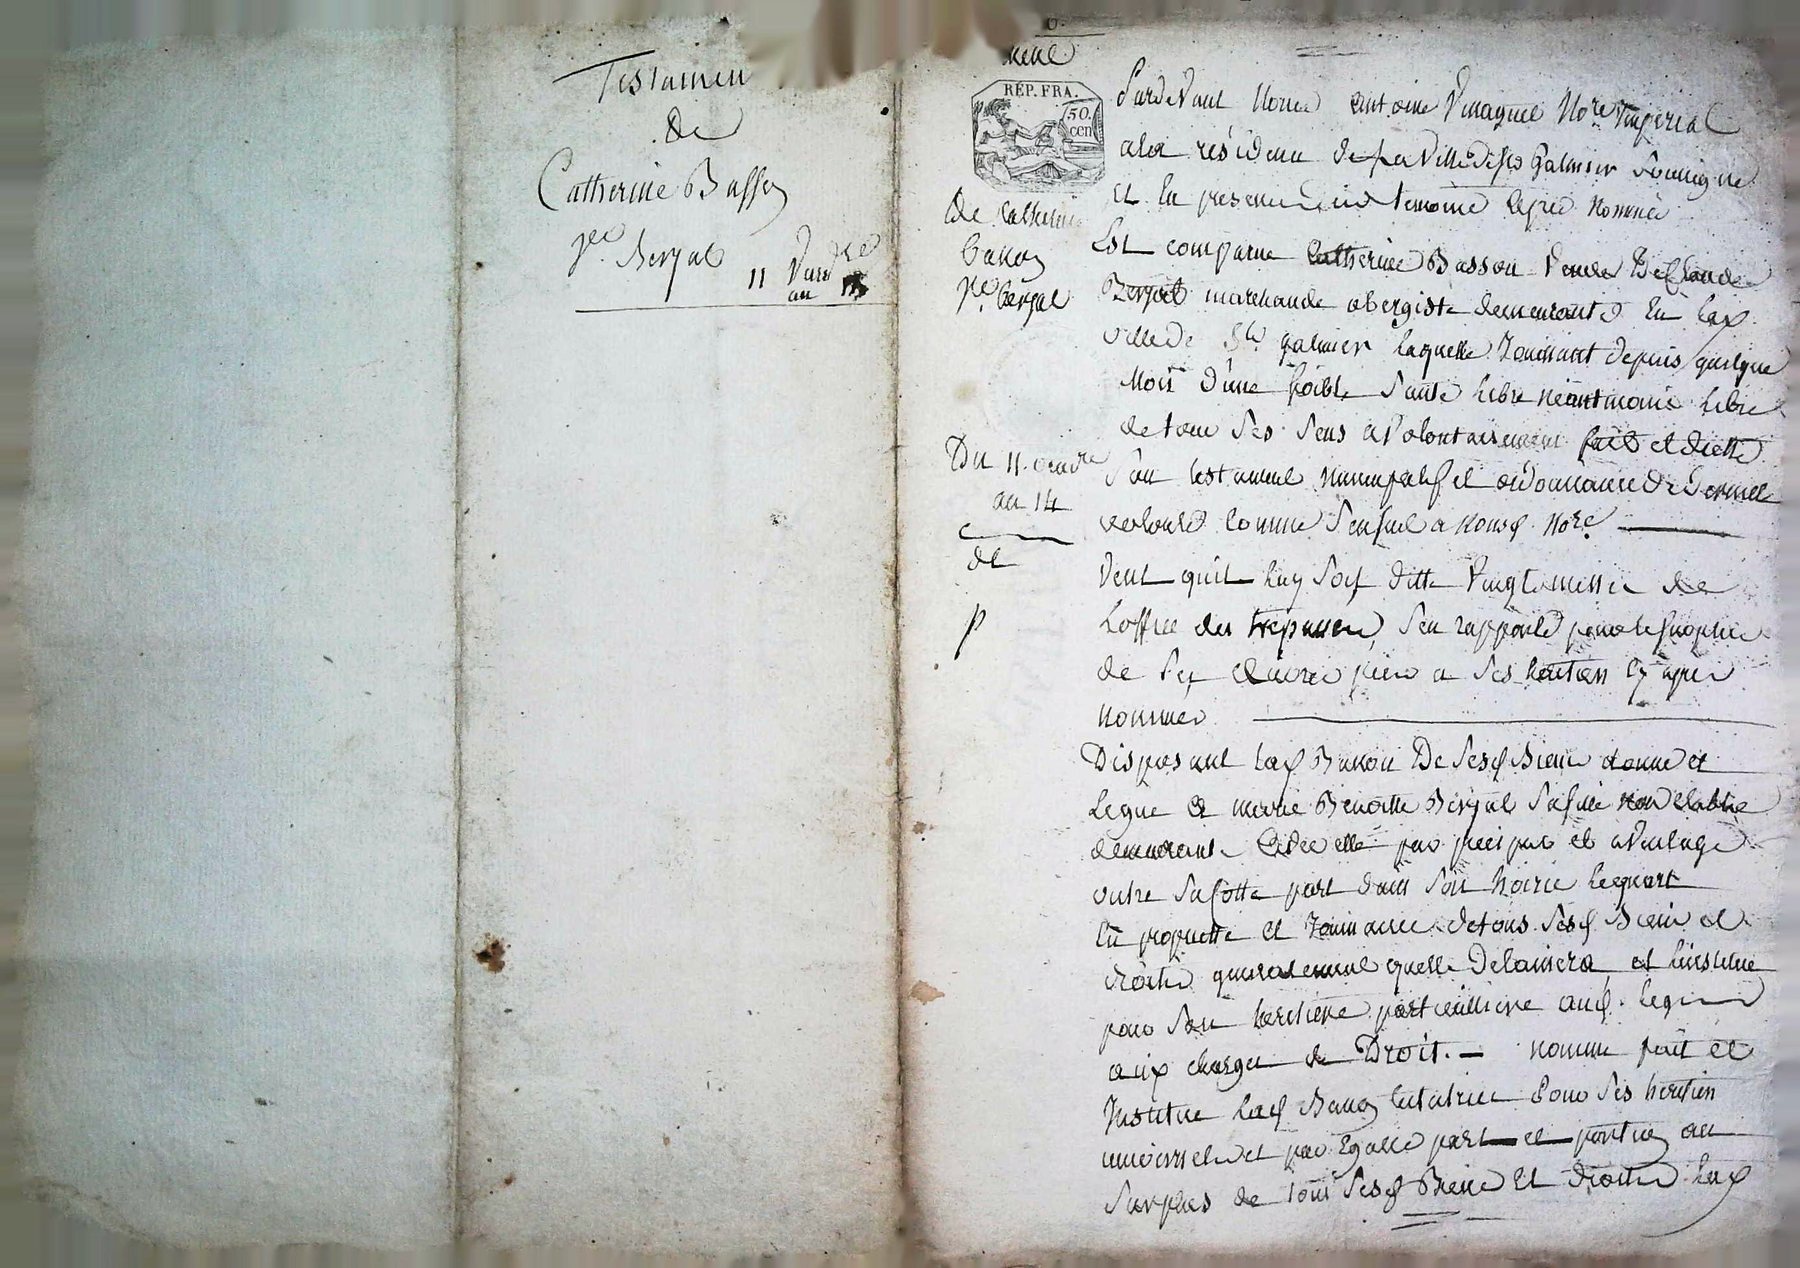 Testamen
de
Catherine Basson
Ve. Berjat
11 Vend.re
an
REP. FRA.
50.
cen
de Catherine
Basson
Ve. Berjat
Du 11. vend.re
an 14
Pardevant Nous antoine Vmaguee No.re Imperial
ala résidence de la Ville de St Galmier soussigné
et En presence des temoins Bas Nommés
Est comparue Catherine Basson Veuve De Claude
Berjat marchande obergiste demeurante En la
ville de St. galmier laquelle Jouissant depuis quelque
Mois d'une foible santé Libre néantmoins Libre
de tous ses sens a Volontairement fait et dicté
son testament nuncupatif et ordonnance de derniere
volonté comme s'ensuit a nous d. No.re
Veut quil luy soit ditte Vingt messes de
L'office des trepassés, s'en rapporte pour le surplus
de ses œuvres pies a ses heritiers cy après
nommés
Disposant lad. Basson De sesd. Biens donne et
Legue a marie Benoitte Berjat sa fille non Etablie
demeurant avec elle par preciput et avantage
outre sa cotte part dans son hoirie le quart
En proprietté et Jouissance de tous sesd. Biens et
droits generalement quelle Delaissera et L'institue
pour son heritiere particulliere aud. legs
aux charges de Droit. — nomme fait et
Institue lad. Basson testatrice Pour ses heritiers
universels et par Egalle part et portion au
surplus de tous sesd. Biens Et droits lad.